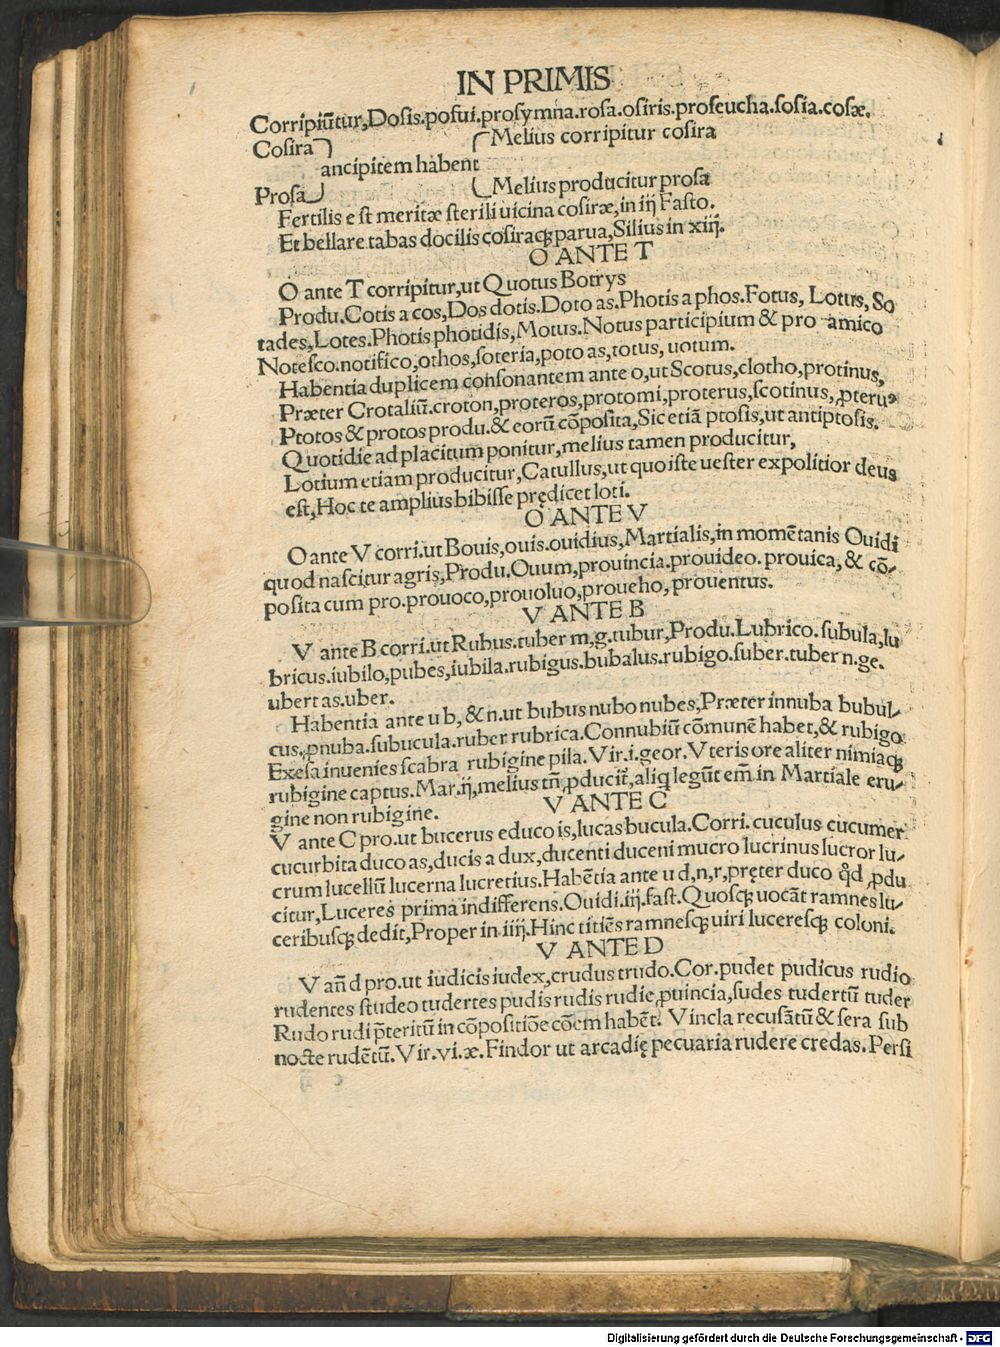 IN PRIMIS
Corripiũtur,Dosis.posui.prosymna.rosa.osiris.proseucha.sosia.cosæ.
Cosira Melius corripitur cosira
ancipitem habent
Prosa Melius producitur prosa
Fertilis est meritæ sterili uicina cosiræ,in iij Fasto.
Et bellare tabas docilis cosiraqꝫ parua,Silius in xiij.
O ANTE T
O ante T corripitur,ut Quotus Botrys
Produ.Cotis a cos,Dos dotis.Doto as.Photis a phos.Fotus, Lotus, So
tades,Lotes.Photis photidis,Motus.Notus participium & pro amico
Notesco.notifico,othos,soteria,poto as,totus, uotum.
Habentia duplicem consonantem ante o,ut Scotus,clotho,protinus,
Præter Crotaliũ.croton,proteros,protomi,proterus,scotinus,ꝓterus
Ptotos & protos produ.& eorũ cõposita,Sic etiã ptosis,ut antiptosis.
Quotidie ad placitum ponitur,melius tamen producitur,
Lotium etiam producitur,Catullus,ut quo iste uester expolitior deus
est,Hoc te amplius bibisse prędicet loti.
O ANTE V
O ante V corri.ut Bouis,ouis.ouidius,Martialis,in momẽtanis Ouidi
quod nascitur agris,Produ.Ouum,prouincia.prouideo.prouica,& cõ-
posita cum pro.prouoco,prouoluo,proueho,prouentus.
V ANTE B
V ante B corri.ut Rubus.tuber m,g.tubur,Produ.Lubrico.subula,lu
bricus.iubilo,pubes,iubila.rubigus.bubalus.rubigo.suber.tuber n.ge.
ubertas.uber.
Habentia ante u b,& n.ut bubus nubo nubes,Præter innuba bubul-
cus,ꝓnuba.subucula.ruber rubrica.Connubiũ cõmunẽ habet,& rubigo
Exesa inuenies scabra rubigine pila.Vir.i.geor.Vteris ore aliter nimiaqꝫ
rubigine captus.Mar.ij,melius tñ,ꝓducit̃,aliq̃ legũt em̃ in Martiale eru-
gine non rubigine.
V ANTE C
V ante C pro.ut bucerus educo is,lucas bucula.Corri.cuculus cucumer
cucurbita duco as,ducis a dux,ducenti duceni mucro lucrinus lucror lu-
crum lucellũ lucerna lucretius.Habẽtia ante u d,n,r,pręter duco q̃d ꝓdu
citur,Luceres prima indifferens.Ouidi.iij.fast.Quosqꝫ uocãt ramnes lu-
ceribusqꝫ dedit,Proper in iiij.Hinc titiẽs ramnesqꝫ uiri luceresqꝫ coloni.
V ANTE D
V añ d pro.ut iudicis iudex,crudus trudo.Cor.pudet pudicus rudio
rudentes studeo tudertes pudis rudis rudie,ꝓuincia,sudes tudertũ tuder
Rudo rudi p̃teritũ in cõpositiõe cõem habẽt. Vincla recusãtũ & sera sub
nocte rudẽtũ.Vir.vi.æ.Findor ut arcadię pecuaria rudere credas.Persi
Digitalisierung gefördert durch die Deutsche Forschungsgemeinschaft - DFG